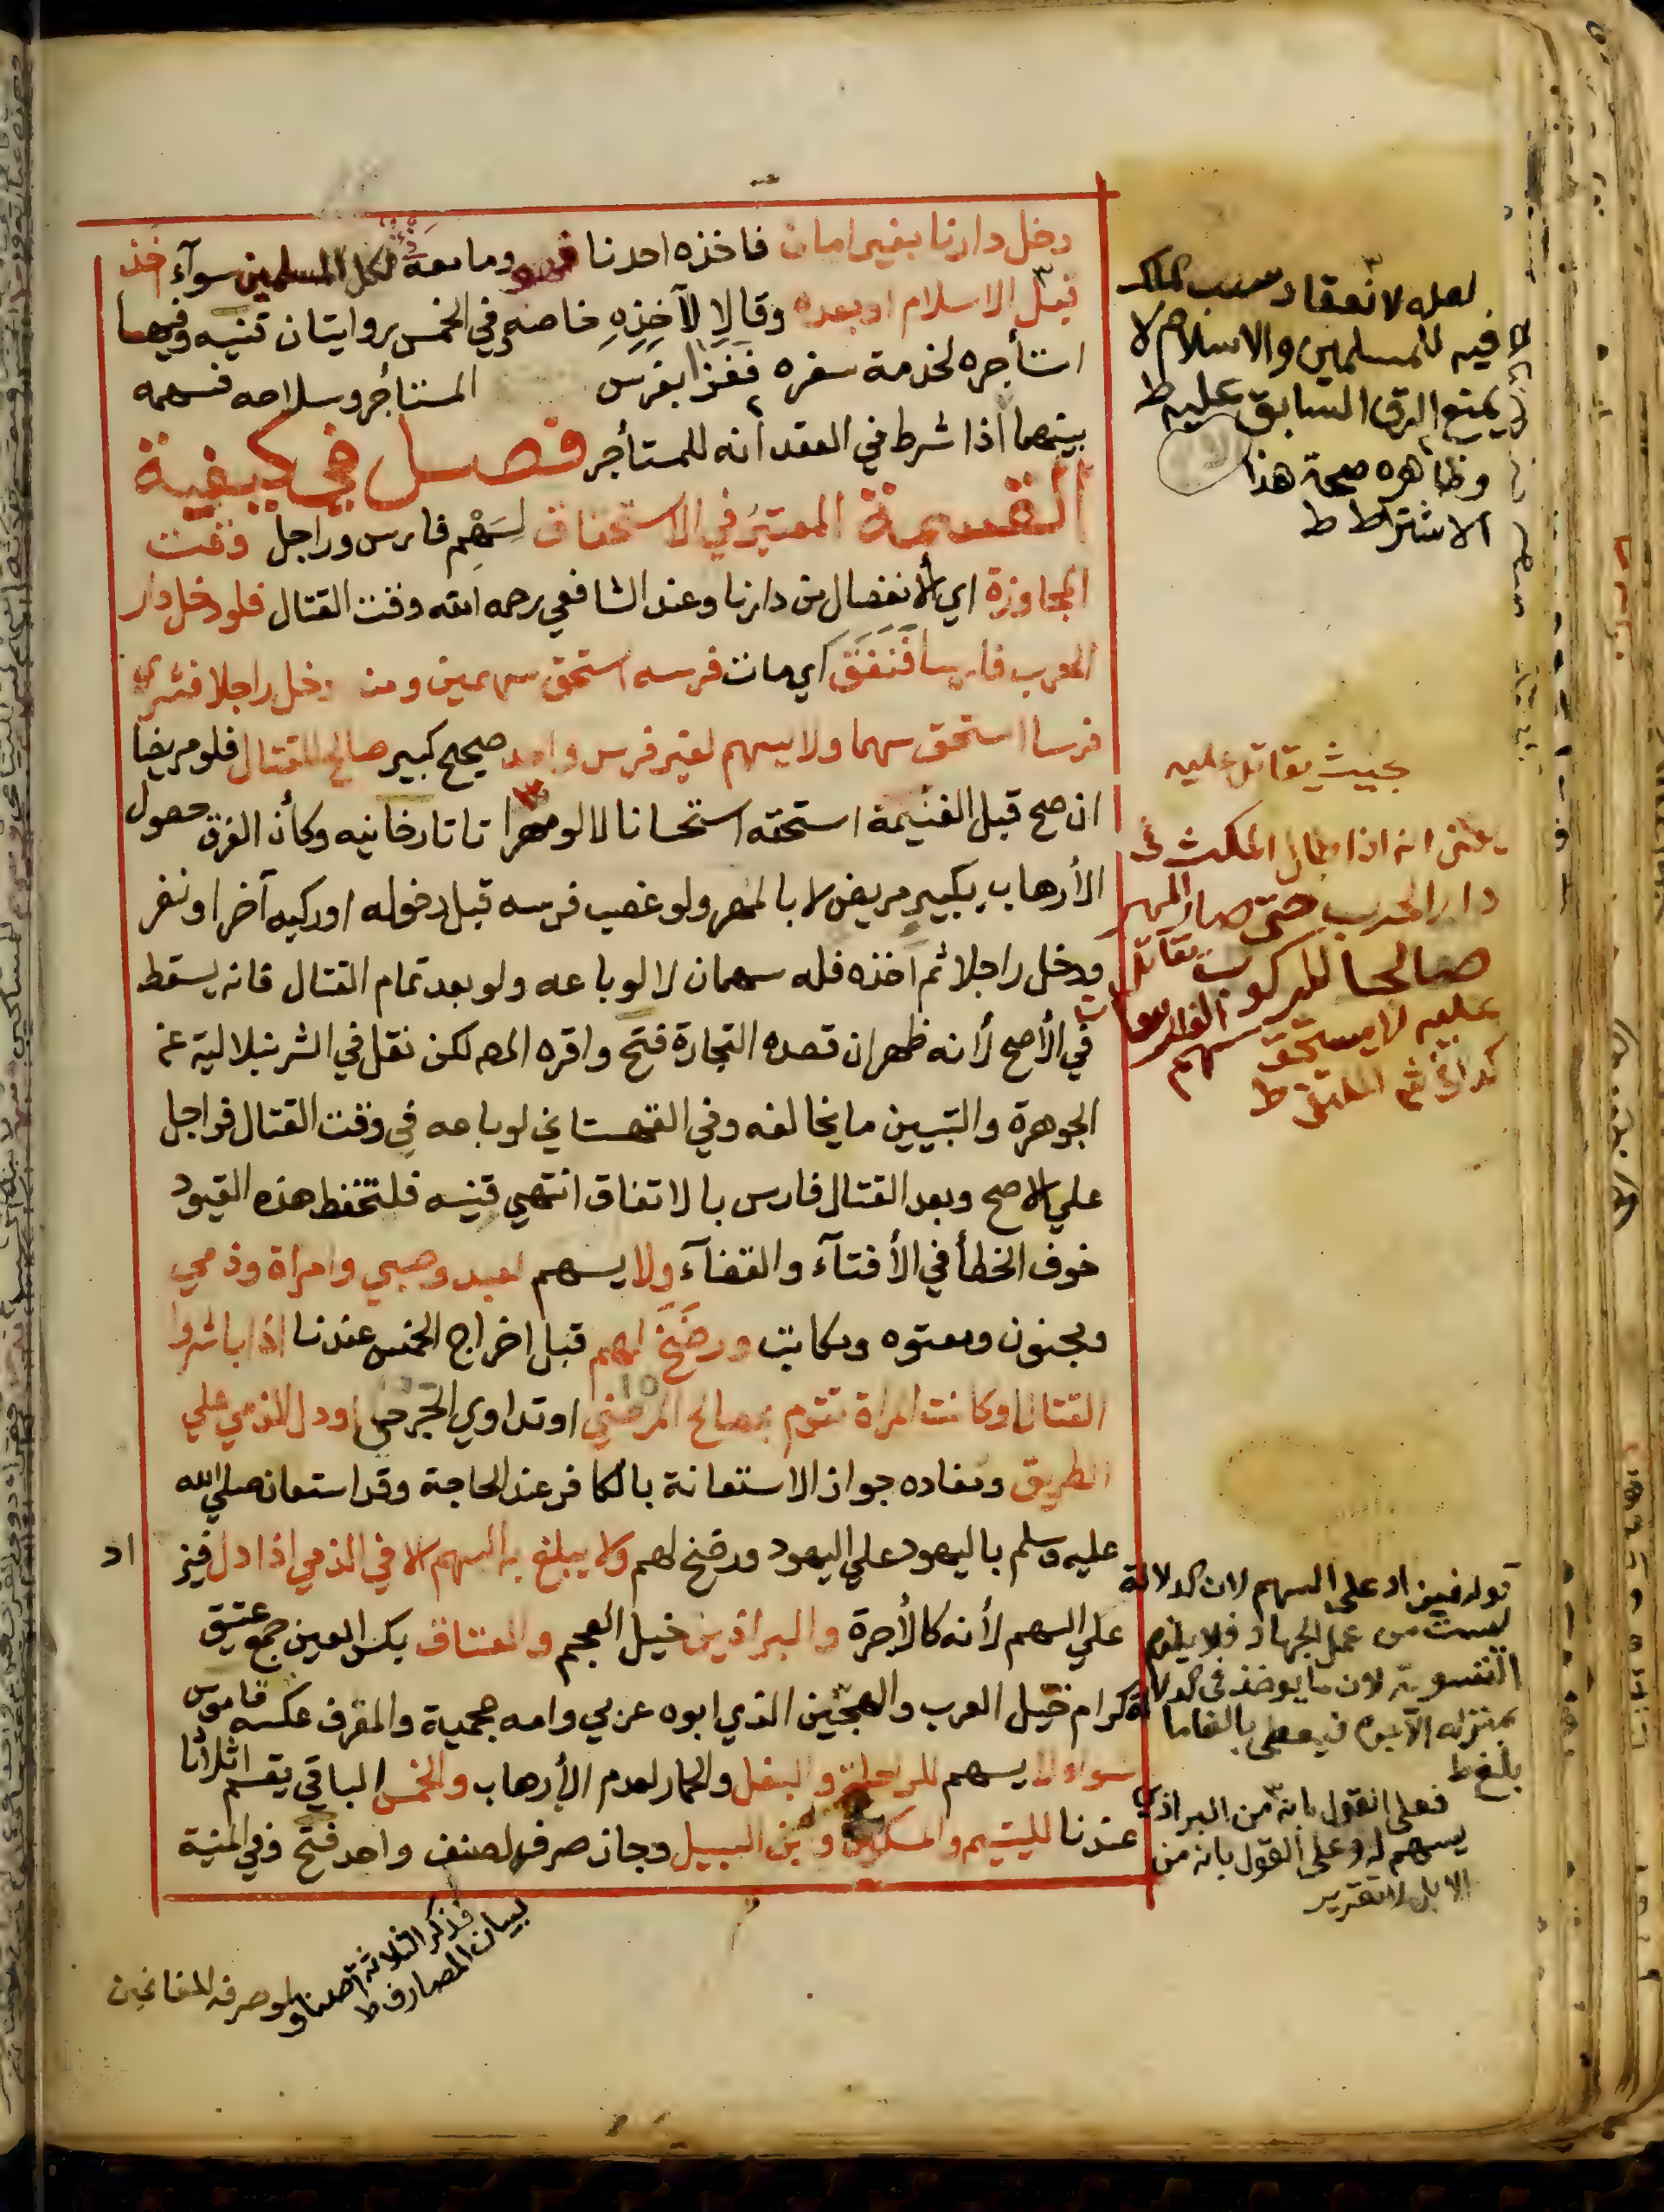 دخل دارنا بغير امان فاخذه احدنا فهو وما معه لكل المسلمين سوآء اخذ
قبل الاسلام او بعده وقالا لآخذه خاصه وفي الخمس روايتان قنيه وفيها
استأجره لخدمة سفره فغزا بفرس المستأجر وسلاحه فسهمه
بينهما اذا شرط في العقد أنه للمستأجر فصل في كيفية
القسمة المعتبر في الاستحقاق لسهم فارس وراجل وقت
المجاوزة اي الانفصال من دارنا وعند الشافعي رحمه الله وقت القتال فلو دخل دار
الحرب فارسا فنفق اي مات فرسه استحق سهمين ومن دخل راجلا فشرى
فرسا استحق سهما ولا يسهم لغير فرس واحد صحيح كبير صالح للقتال فلو مريضا
ان صح قبل الغنيمة استحقه استحسانا لا لو مهرا تاتارخانيه وكأن الفرق حصول
الأرهاب بكبير مريض لا بالمهر ولو غصب فرسه قبل دخوله او ركبه آخر او نفر
ودخل راجلا ثم اخذه فله سهمان لا لو باعه ولو بعد تمام القتال فانه يسقط
في الأصح لأنه ظهر ان قصده التجارة فتح واقره المص لكن نقل في الشرنبلالية عن
الجوهرة والتبيين ما يخالفه وفي القهستاني لو باعه في وقت القتال فراجل
علي الاصح وبعد القتال فارس بالاتفاق انتهي قنيه فلتحفظ هذه القيود
خوف الخطأ في الأفتآء والقضآء ولا يسهم لعبد وصبي وامراة وذمي
ومجنون ومعتوه ومكاتب ورضخ لهم قبل اخراج الخمس عندنا اذا باشروا
القتال او كانت امراة تقوم بمصالح المرضي او تداوي الجرحي او دل الذمي علي
الطريق ومفاده جواز الاستعانة بالكافر عند الحاجة وقد استعان صلي الله
عليه وسلم باليهود علي اليهود ورضخ لهم ولا يبلغ به السهم الا في الذمي اذا دل فيز
اد
علي السهم لأنه كالأجرة والبراذين خيل العجم والعتاق بكسر العين جمع عتيق
كرام خيل العرب والهجين الذي ابوه عربي وامه عجمية والمقرف عكسه قاموس
سواء لا يسهم للراحلة والبغل والحمار لعدم الأرهاب والخمس الباقي يقسم اثلاثا
عندنا لليتيم والمسكين وابن السبيل وجاز صرفه لصنف واحد فتح وفي المنية
لو صرفه للغانمين
لعله لانعقاد سبب الملك
فيه للمسلمين والاسلام لا
يمنع الرق السابق عليه ط
وظاهره صحة هذا
الاشتراط ط
بحيث يقاتل عليه
يعني انه اذا طال المكث في
دار الحرب حتى صار المهر
صالحا للركوب يقاتل
عليه لا يستحق سهم الفارس
كذا في شرح الملتقى ط
قوله فيزاد على السهم لان الدلالة
ليست من عمل الجهاد فلا يلزم
التسوية لان ما يوخذ في الدلالة
بمنزلة الاجرة فيعطى بالغا ما
بلغ ط
فعلى القول بانه من البراذين
يسهم له وعلى القول بانه من
الابل لا تقرير
فذكر الثلاثة
لبيان المصارف ط